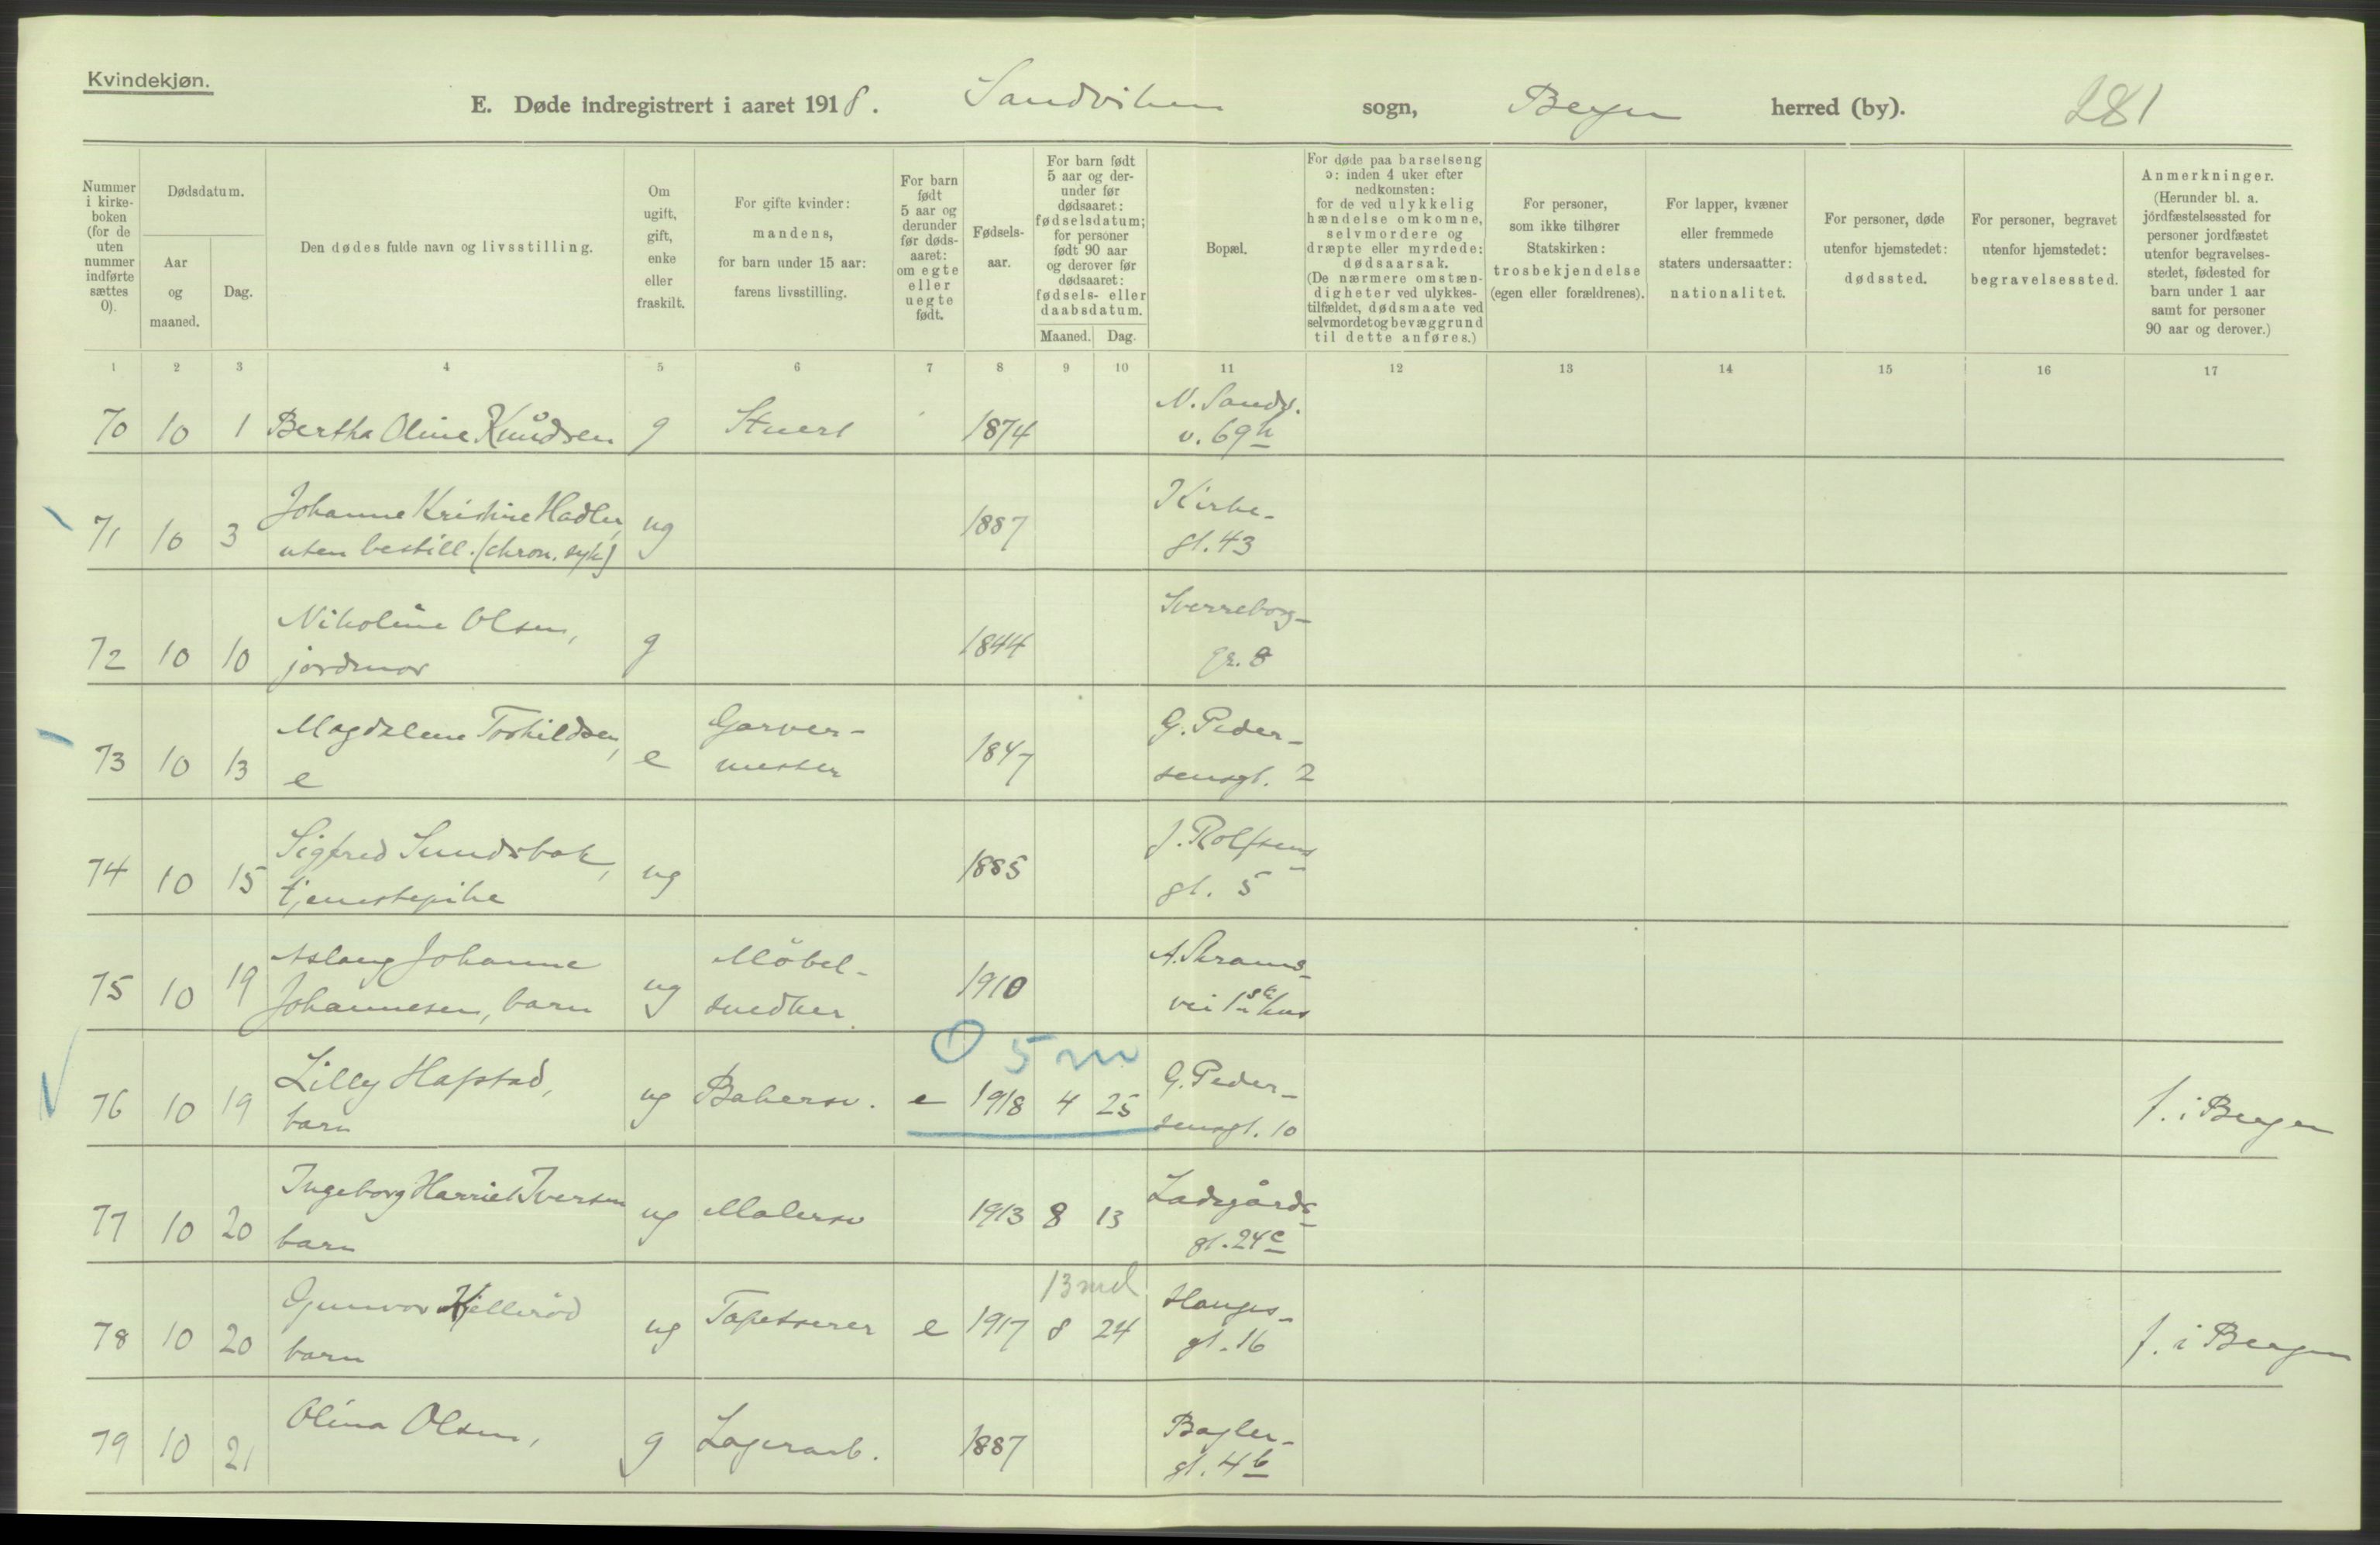 Kvindekjøn.
E. Døde indregistrert i aaret 1918. Sandviken sogn, Bergen herred (by). 281
Nummer i kirke-boken (for de uten nummer indførte sættes 0).
Dødsdatum.
Aar og maaned.
Dag.
Den dødes fulde navn og livsstilling.
Om ugift, gift, enke eller fraskilt.
For gifte kvinder: mandens, for barn under 15 aar: farens livsstilling.
For barn født 5 aar og derunder før døds-aaret: om egte eller uegte født.
Fødsels-aar.
For barn født 5 aar og der-under før dødsaaret: fødselsdatum; for personer født 90 aar og derover før dødsaaret: fødsels- eller daabsdatum.
Maaned. Dag.
Bopæl.
For døde paa barselseng ɔ: inden 4 uker efter nedkomsten: for de ved ulykkelig hændelse omkomne, selvmordere og dræpte eller myrdede: dødsaarsak. (De nærmere omstæn-digheter ved ulykkes-tilfældet, dødsmaate ved selvmordet og bevæggrund til dette anføres.)
For personer, som ikke tilhører Statskirken: trosbekjendelse (egen eller forældrenes).
For lapper, kvæner eller fremmede staters undersaatter: nationalitet.
For personer, døde utenfor hjemstedet: dødssted.
For personer, begravet utenfor hjemstedet: begravelsessted.
Anmerkninger. (Herunder bl. a. jordfæstelsessted for personer jordfæstet utenfor begravelses-stedet, fødested for barn under 1 aar samt for personer 90 aar og derover.)
1 2 3 4 5 6 7 8 9 10 11 12 13 14 15 16 17
70 10 1 Bertha Oline Knudsen g Stuert 1874 N. Sandv. v. 69 h
71 10 3 Johanne Kristine Hadler, ug 1887 Kirke-
uten bestill. (chron. syk) gt. 43
72 10 10 Nikoline Olsen, g 1844 Sverreborg-
jordmor gr. 8
73 10 13 Magdalene Torkildsen, e Garver- 1847 G. Peder-
e mester sensgt. 2
74 10 15 Sigfred Sundsbak, ug 1885 J. Rolfsens-
tjenestepike gt. 5
75 10 19 Aslaug Johanne ug Möbel- 1910 A. Skrams-
Johannesen, barn snedker vei 1ste hus
5 m
76 10 19 Lilly Hafstad, ug Bakersv. e 1918 4 25 G. Peder- f. i Bergen
barn sensgt. 10
77 10 20 Ingeborg Harriet Iversen ug Malersv 1913 8 13 Ladegårds-
barn gt. 24 c
13 md
78 10 20 Gunvor Kjelleröd ug Tapetserer e 1917 8 24 Hauges- f. i Bergen
barn gt. 16
79 10 21 Olina Olsen, g Lagerarb. 1887 Bagler-
gt. 4 b